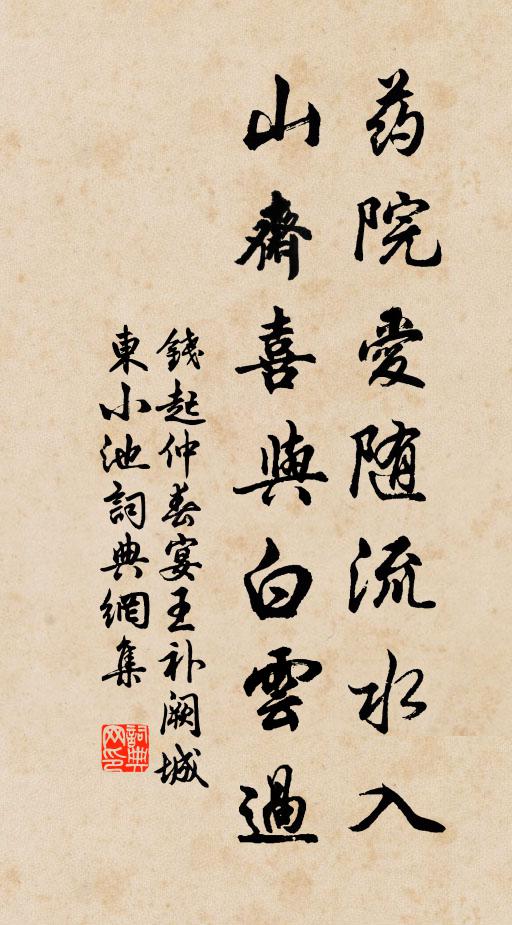 药院爱随流水入
山齋喜與白雲過
錢起仲春宴王补阙城
東小池詞典網集
詞典网印